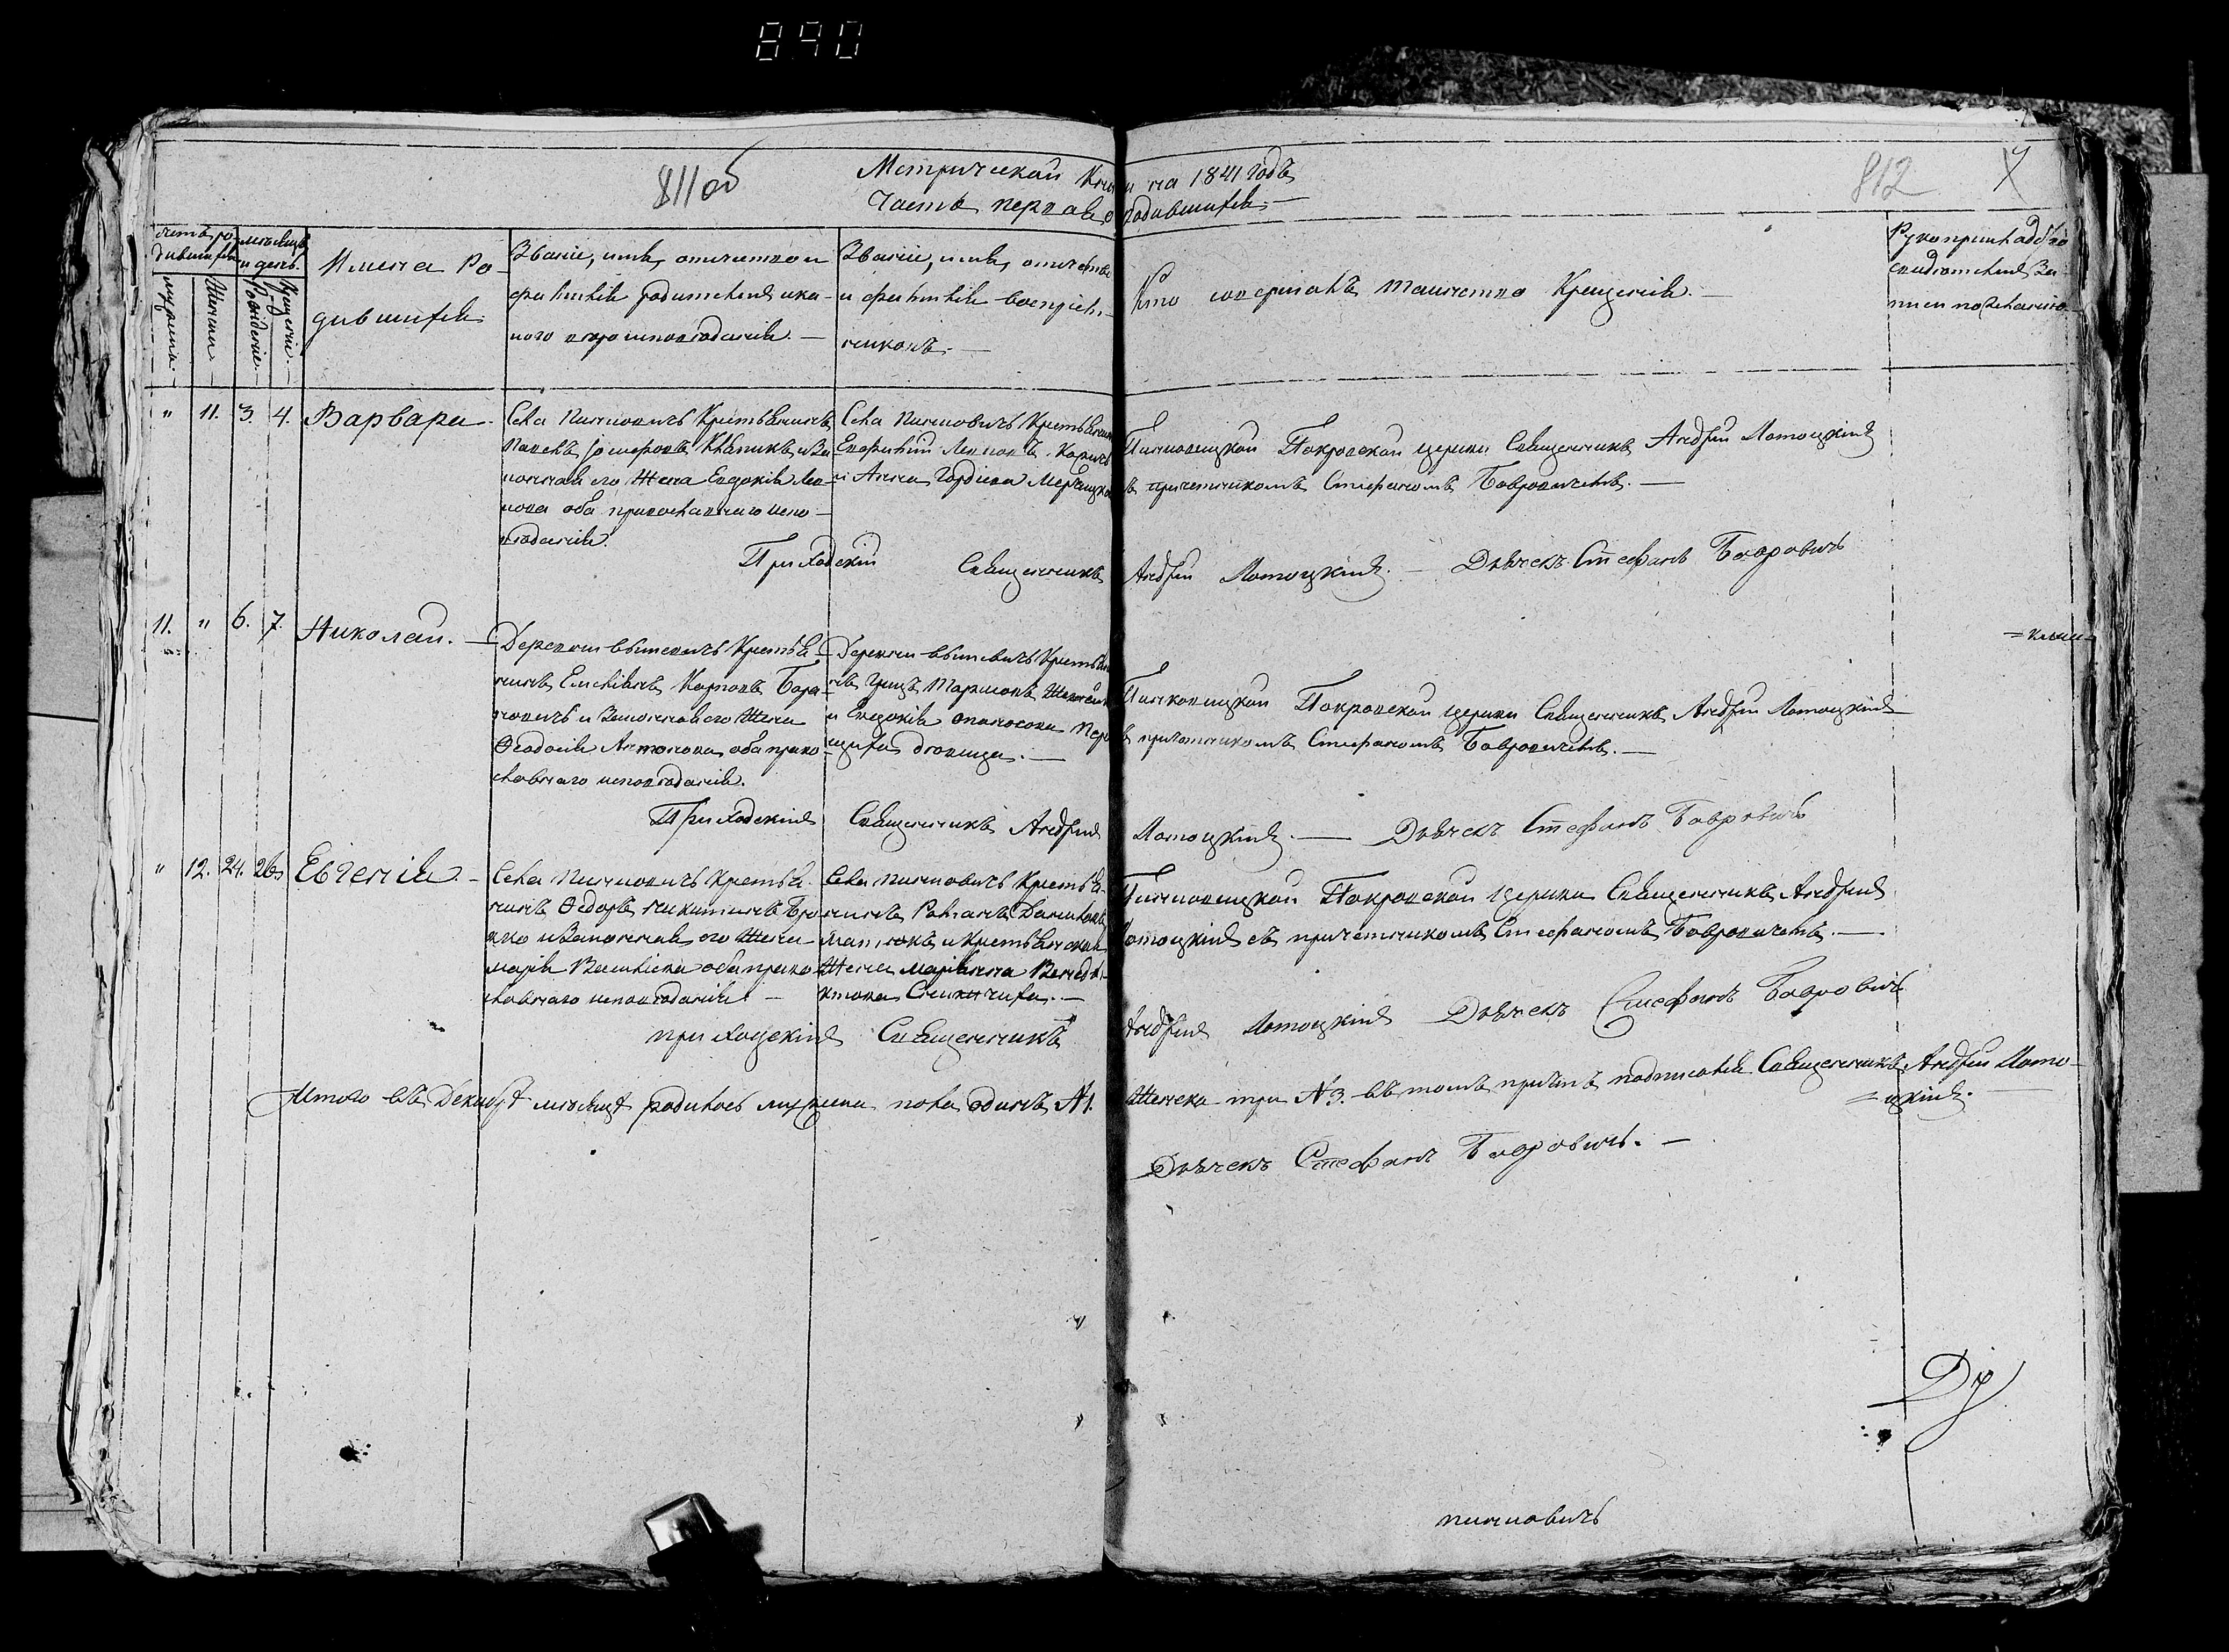 890
811об
812
Метрической Книги на 1841 годъ
Часть первая о родившихся.
счетъ ро-
дившихся
мѣсяцъ
и день.
мужеска
женска
рожденіе
крещеніе
Имена Ро-
дившихся
Званіе, имя, отчество и
фамилія родителей и ка-
кого вѣроисповѣданія. —
Званіе, имя, отчество
и фамилія воспріем-
никовъ. —
Кто совершалъ таинство Крещенія. —
Рукоприкладство
свидѣтелей за-
писи по желанію
" 11. 3. 4. Варвара.
Села Пинковичъ Крестьянинъ
Павелъ Іосифовъ и За-
конная его Жена Евдокія Лео-
нова оба православнаго испо-
вѣданія.
Села Пинковичъ Крестьянинъ
Леоновъ
и Анна Гордіева
Пинковицкой Покровской церкви Священникъ Андрей Лотоцкій
съ причетникомъ Стефаномъ Бавровичемъ. —
Приходскій Священникъ Андрей Лотоцкій. — Дьячекъ Стефанъ Бавровичъ
11. " 6. 7. Николай. —
Деревни вышевичъ Крестья-
нинъ Емеліанъ Карповъ Бара-
новичъ и Законная его Жена
Ѳеодосія Антонова оба право-
славнаго исповѣданія.
Деревни вышевичъ Крестьяни-
нъ Грицъ
и Евдокія
дѣвица. —
Пинковицкой Покровской церкви Священникъ Андрей Лотоцкій
съ причетникомъ Стефаномъ Бавровичемъ. —
Приходскій Священникъ Андрей Лотоцкій. — Дьячекъ Стефанъ Бавровичъ
" 12. 24. 26. Евгенія. —
Села Пинковичъ Крестья-
нинъ Ѳедоръ Никитинъ
и Законная его Жена
марія Васильева оба право-
славнаго исповѣданія. —
Села Пинковичъ Крестья-
нинъ Романъ Даниловъ
и Крестьянская
Жена маріянна Венеди-
ктова
Пинковицкой Покровской Церкви Священникъ Андрей
Лотоцкій съ причетникомъ Стефаномъ Бавровичемъ. —
приходскій Священникъ Андрей Лотоцкій Дьячекъ Стефанъ Бавровичъ
Итого въ Декабрѣ мѣсяцѣ родилось мужеска пола одинъ №1. Женска три №3. въ томъ причтъ подписался Священникъ Андрей Лото-
=цкій.
Дьячекъ Стефанъ Бавровичъ. —
пинковичъ